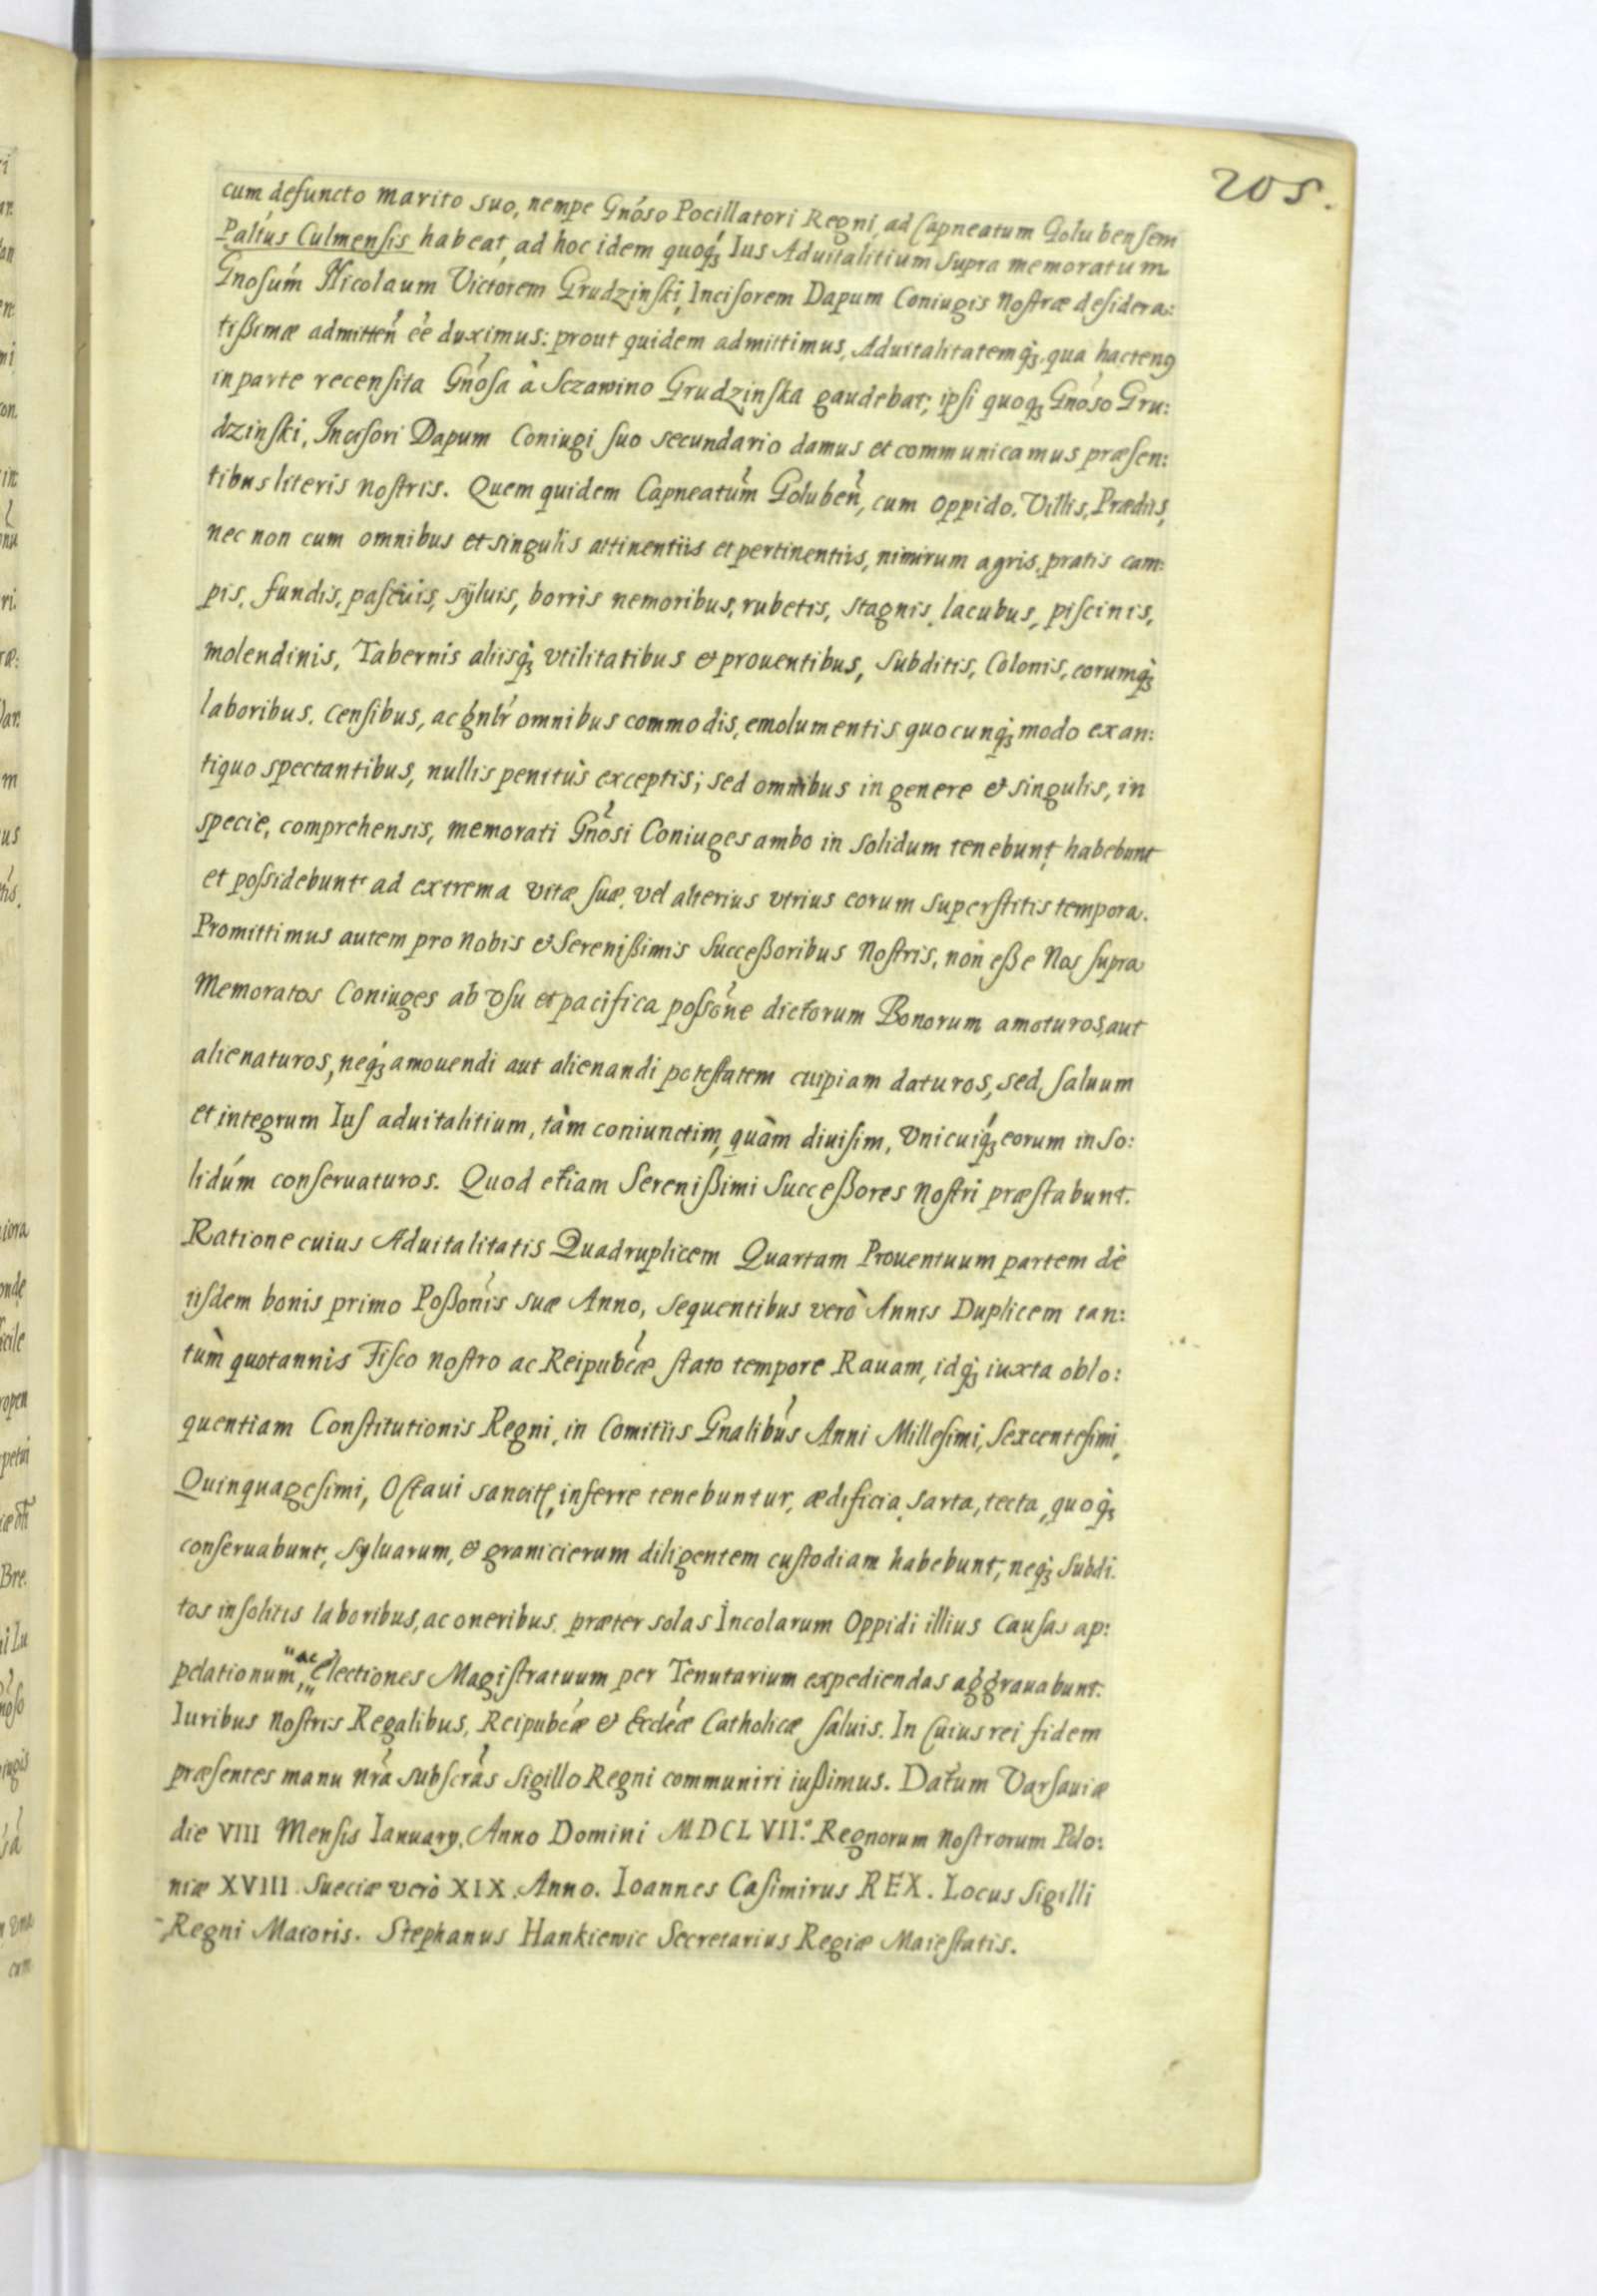 205.
cum defuncto marito suo, nempe Gnóso Pocillatori Regni, ad Capneatum Golubensem
Paltús Culmensis habeat, ad hoc idem quoqꝫ Ius Aduitalitium supra memoratum
Gnosúm Nicolaum Victorem Grudzinski, Incisorem Dapum Coniugis Nostræ desidera:
tißimæ admitteñ eé duximus: prout quidem admittimus, Aduitalitatemqꝫ qua hactenꝯ
in parte recensita Gnósa à Sczawino Grudzinska gaudebat; ipsi quoqꝫ Gnóso Gru:
dzinski, Incisori Dapum Coniugi suo secundario damus et communicamus præsen:
tibus literis nostris. Quem quidem Capneatum Golubeñ, cum oppido, Villis, Prædiis,
nec non cum omnibus et singulis attinentiis et pertinentiis, nimirum agris, pratis cam:
pis, fundis, pascuis, sÿluis, borris nemoribus, rubetis, stagnis, lacubus, piscinis,
molendinis, Tabernis aliisqꝫ vtilitatibus & prouentibus, Subditis, Colonis, eorumqꝫ
laboribus, censibus, ac gńlr omnibus commodis, emolumentis quocunqꝫ modo ex an:
tiquo spectantibus, nullis penitùs exceptis; sed omnibus in genere & singulis, in
specie, comprehensis, memorati Gnósi Coniuges ambo in solidum tenebunt, habebunt
et possidebunt ad extrema vitæ suæ, vel alterius vtrius eorum superstitis tempora.
Promittimus autem pro Nobis & Serenißimis Succeßoribus Nostris, non eße Nos supra
Memoratos Coniuges ab vsu et pacifica poßone dictorum Bonorum amoturos, aut
alienaturos, neqꝫ amouendi aut alienandi potestatem cuipiam daturos, sed, saluum
et integrum Ius aduitalitium, tàm coniunctim, quàm diuisim, Vnicuiqꝫ eorum in so:
lidúm conseruaturos. Quod etiam Serenißimi Succeßores Nostri præstabunt.
Ratione cuius Aduitalitatis Quadruplicem Quartam Prouentuum partem dè
ijsdem bonis primo Poßonis suæ Anno, sequentibus verò Annis Duplicem tan:
tùm quotannis Fisco nostro ac Reipubcæ stato tempore Rauam, idqꝫ iuxta oblo:
quentiam Constitutionis Regni, in Comitiis Gnalibus Anni Millesimi, Sexcentesimi,
Quinquagesimi, Octaui sancitę, inferre tenebuntur, ædificia, sarta, tecta, quoqꝫ
conseruabunt, Syluarum, & granicierum diligentem custodiam habebunt; neqꝫ Subdi
tos insolitis laboribus, ac oneribus, præter solas Incolarum Oppidi illius Causas ap:
pelationum, ac electiones Magistratuum per Tenutarium expediendas aggrauabunt.
Iuribus Nostris Regalibus, Reipubcæ & Eccleæ Catholicæ saluis. In Cuius rei fidem
præsentes manu nrã subscrãs Sigillo Regni communiri iußimus. Datum Varsauiæ
die VIII Mensis Ianuary, Anno Domini MDCLVII.° Regnorum Nostrorum Polo:
niæ XVIII. Sueciæ verò XIX. Anno. Ioannes Casimirus REX. Locus Sigilli
Regni Maioris. Stephanus Hankiewic Secretarius Regiæ Maiestatis.